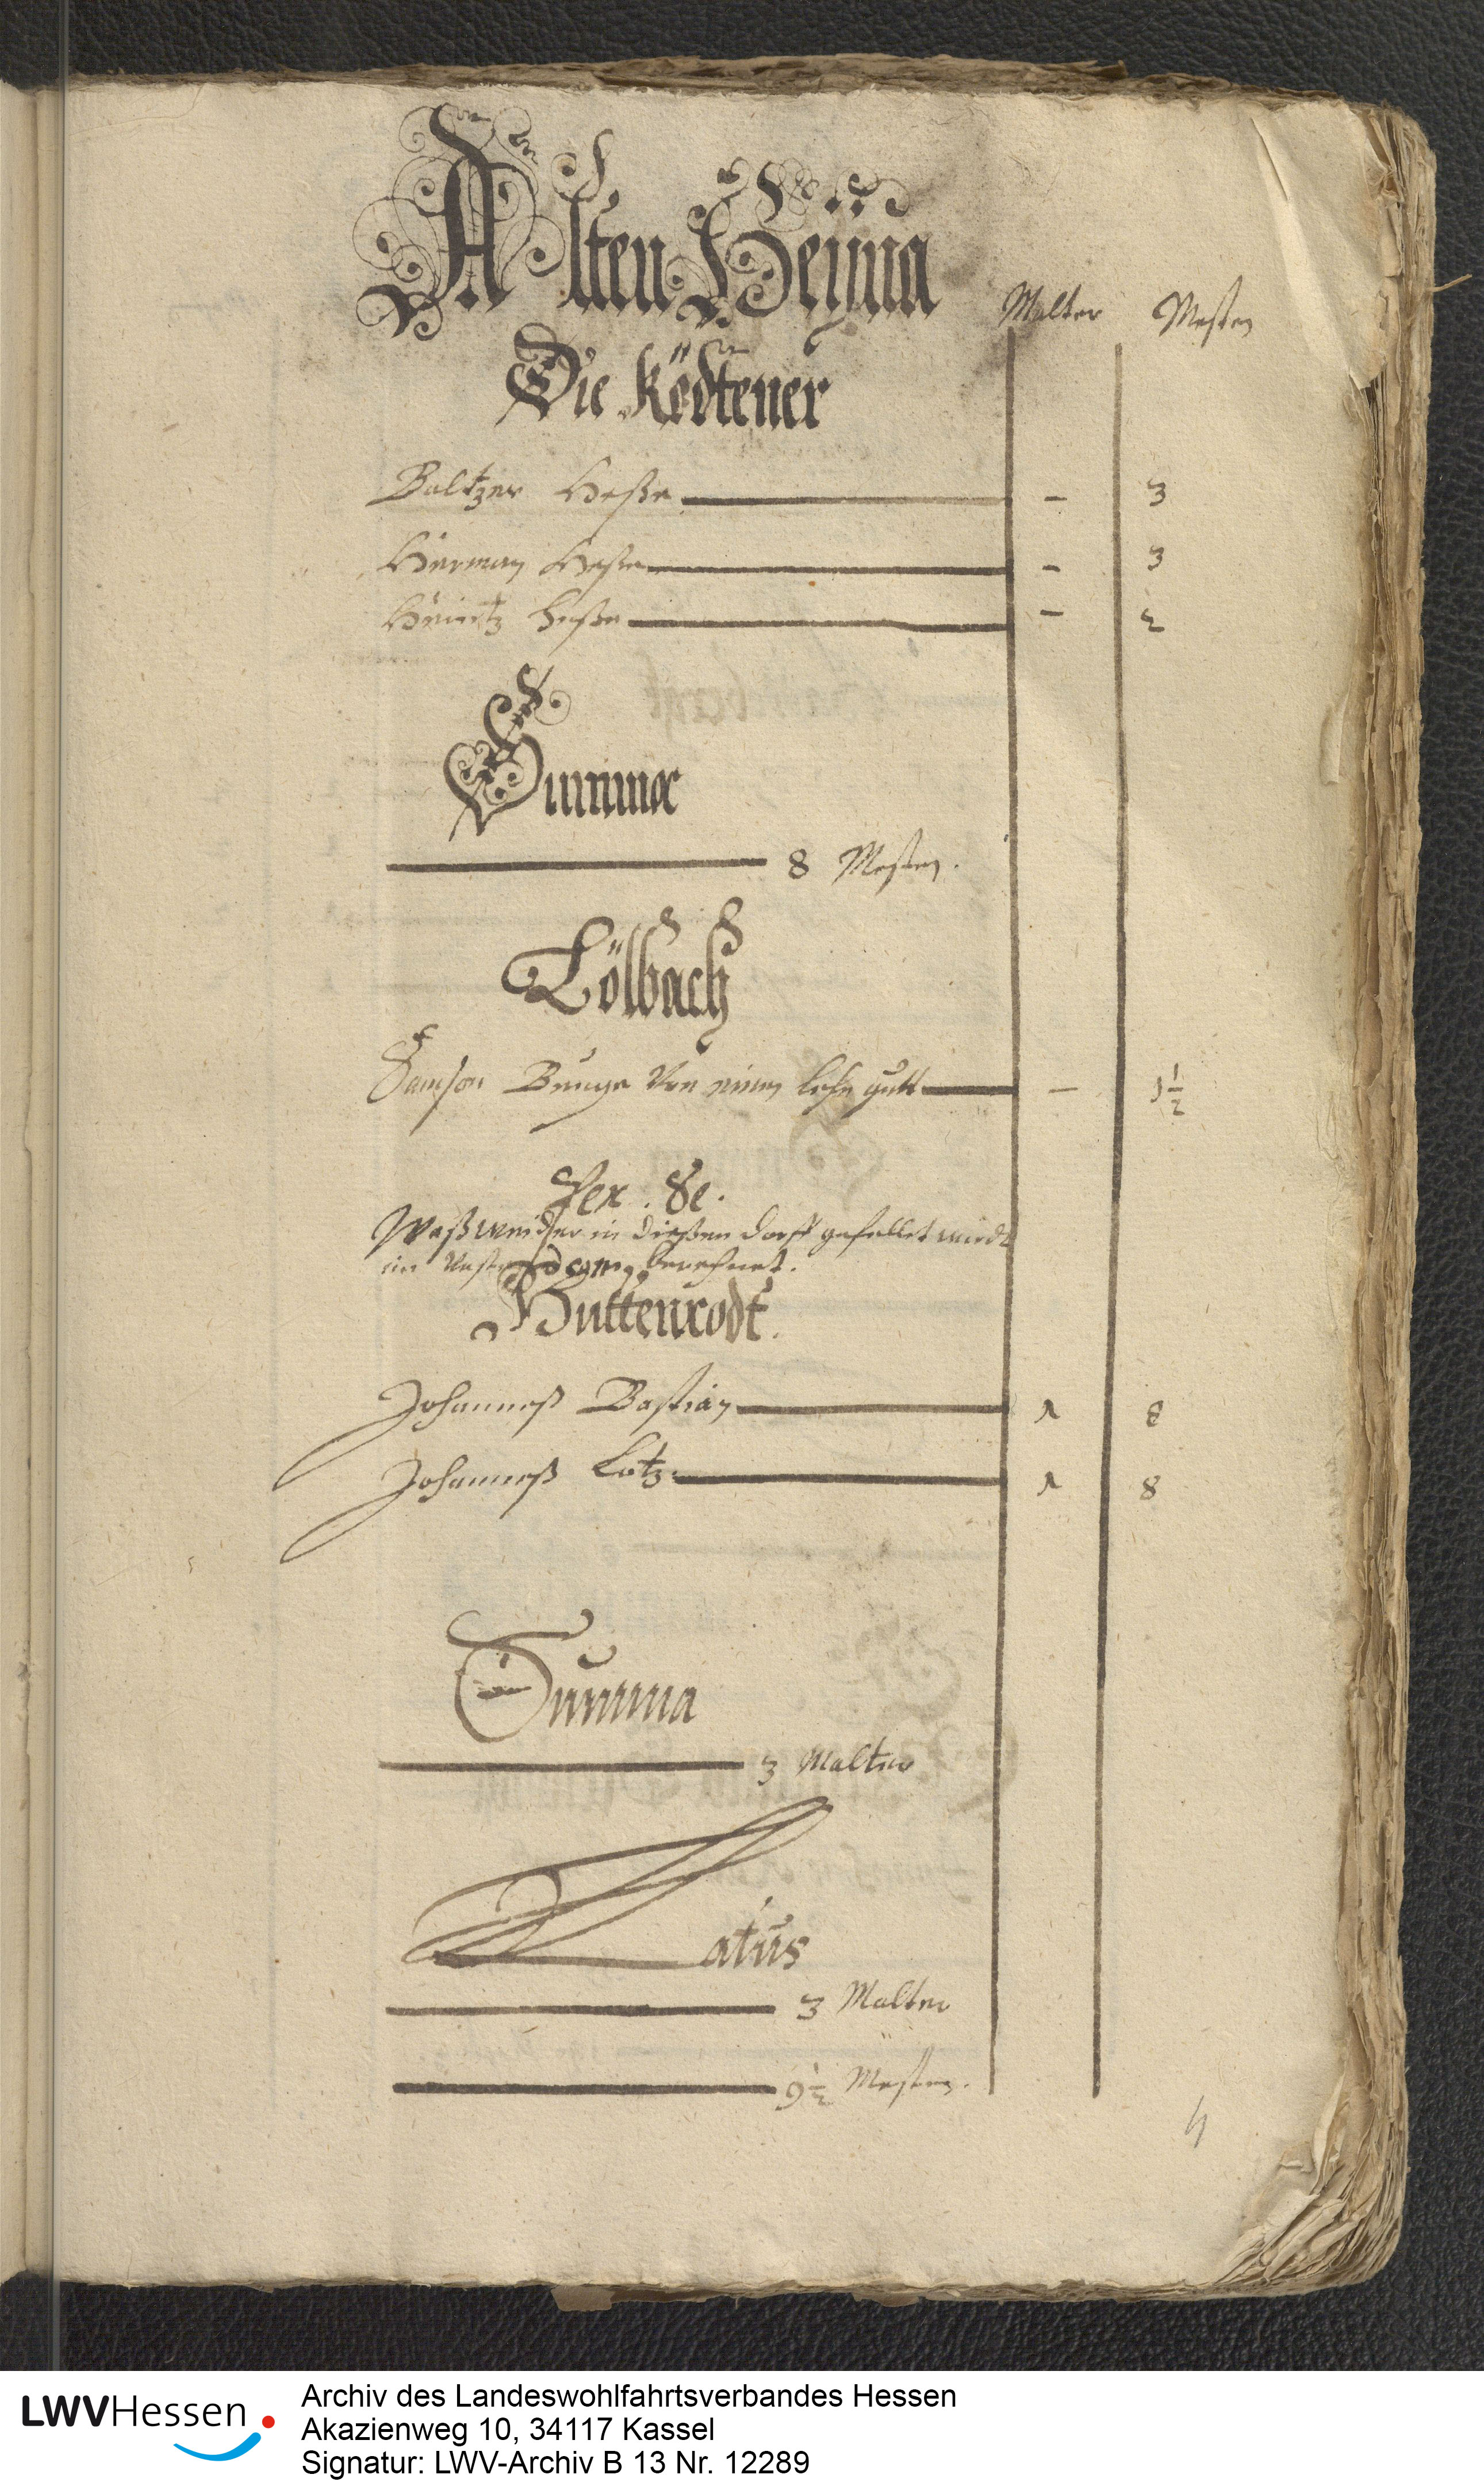 Alten Heÿna
Malter Mesten
Die Ködtener
Baltzer Heße - 3
Herman Heße - 3
Heintz Heße - 2
Summa
8 Mesten.
Cölbach
Samson Bunge Von einem lehn gutt - 1 1/2
Per. Se.
Waß weider in dießen dorff gefellet wirdt
im berechnet.
Huttenrodt.
Johanneß Bastian 1 8
Johanneß Lotz 1 8
Summa
3 Malter
Latus
3 Malter
9 1/2 Mesten.
4
LWVHessen
Archiv des Landeswohlfahrtsverbandes Hessen
Akazienweg 10, 34117 Kassel
Signatur: LWV-Archiv B 13 Nr. 12289